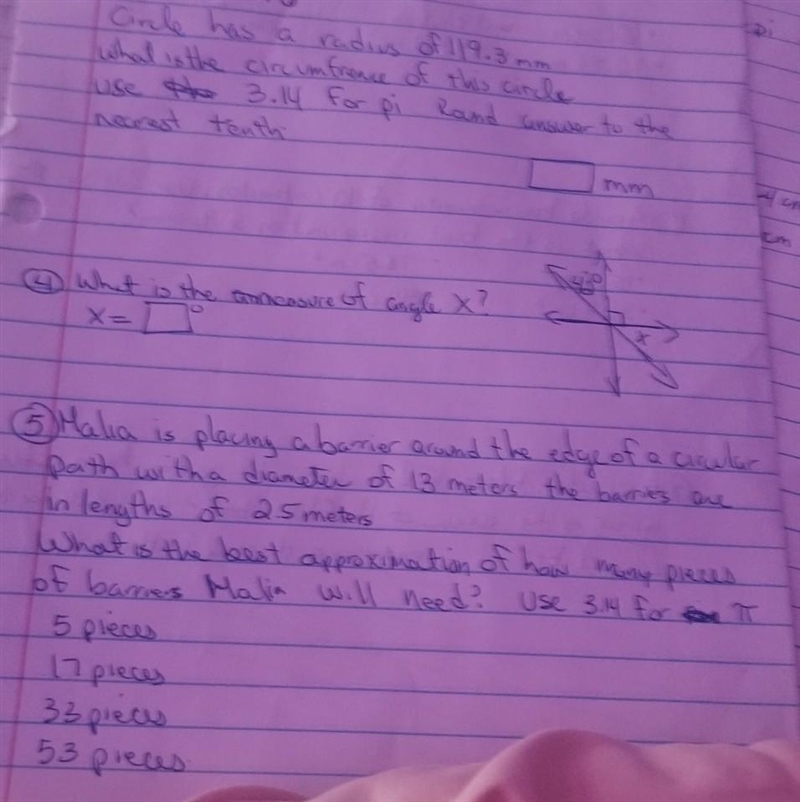 Circle has a radius of 119.3 mm
What is the circumfrence of this circle
use 3.14 for pi Round answer to the
nearest tenth.
mm
④ What is the measure of angle x?
x= °
x
⑤ Malia is placing a barrier around the edge of a circular
path with a diameter of 13 meters the barriers are
in lengths of 25 meters
What is the best approximation of how many pieces
of barriers Malia will need? Use 3.14 for π
5 pieces
17 pieces
33 pieces
53 pieces
cm